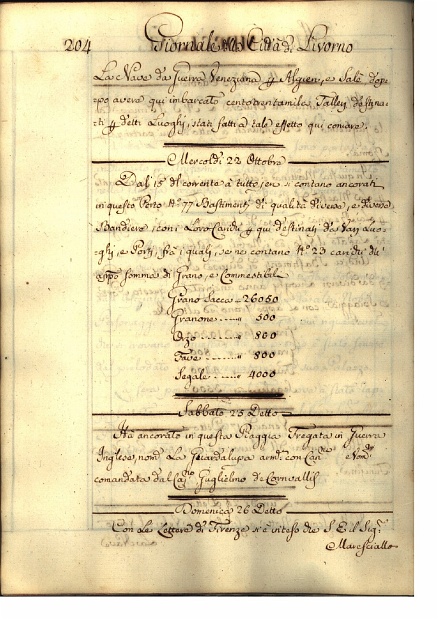 204 Giornale della Città di Livorno
La Nave da Guerra Veneziana p Algieri, e Salè dopo
po aver qui imbarcato centotrentamila Talleri destina
ti p detti Luoghi, stati fatti a tale effetto qui coniare.
Mercoldì 22 Ottobre
Dal 15 del corrente a tutto jeri si contano ancorati
in questo Porto N.º 77 Bastimenti di qualità diversa, e diverse
Bandiere con i Loro Carichi p qui destinati da Varj Luo
ghi, e Porti, fra i quali se ne contano N.º 23 carichi di
somme di Grano, e Commestibili
Grano Sacca = 26050
Granone 500
Orzo 800
Fave 800
Segale 4000
Sabbato 25 Detto
Ha ancorato in questa Piaggia Fregata in Guerra
Inglese, nom.
comandata dal Cap.no Guglielmo de Cornvallis
Domenica 26 Detto
Con le Lettere di Firenze si è inteso che S. E. il Sig.r
Maresciallo